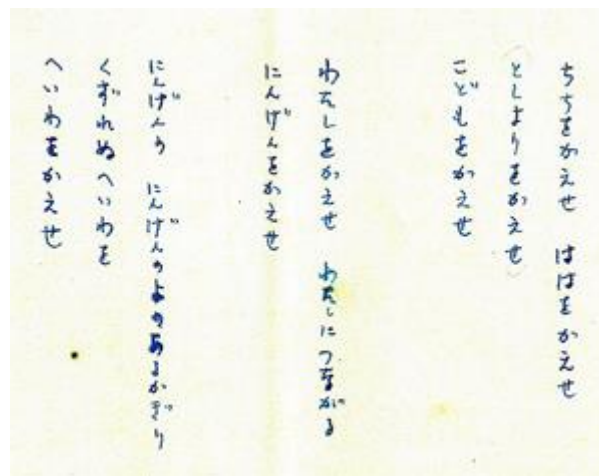 ちちをかえせ　ははをかえせ
としよりをかえせ
こどもをかえせ
わたしをかえせ　わたしにつながる
にんげんをかえせ
にんげんの　にんげんのよのあるかぎり
くずれぬへいわを
へいわをかえせ